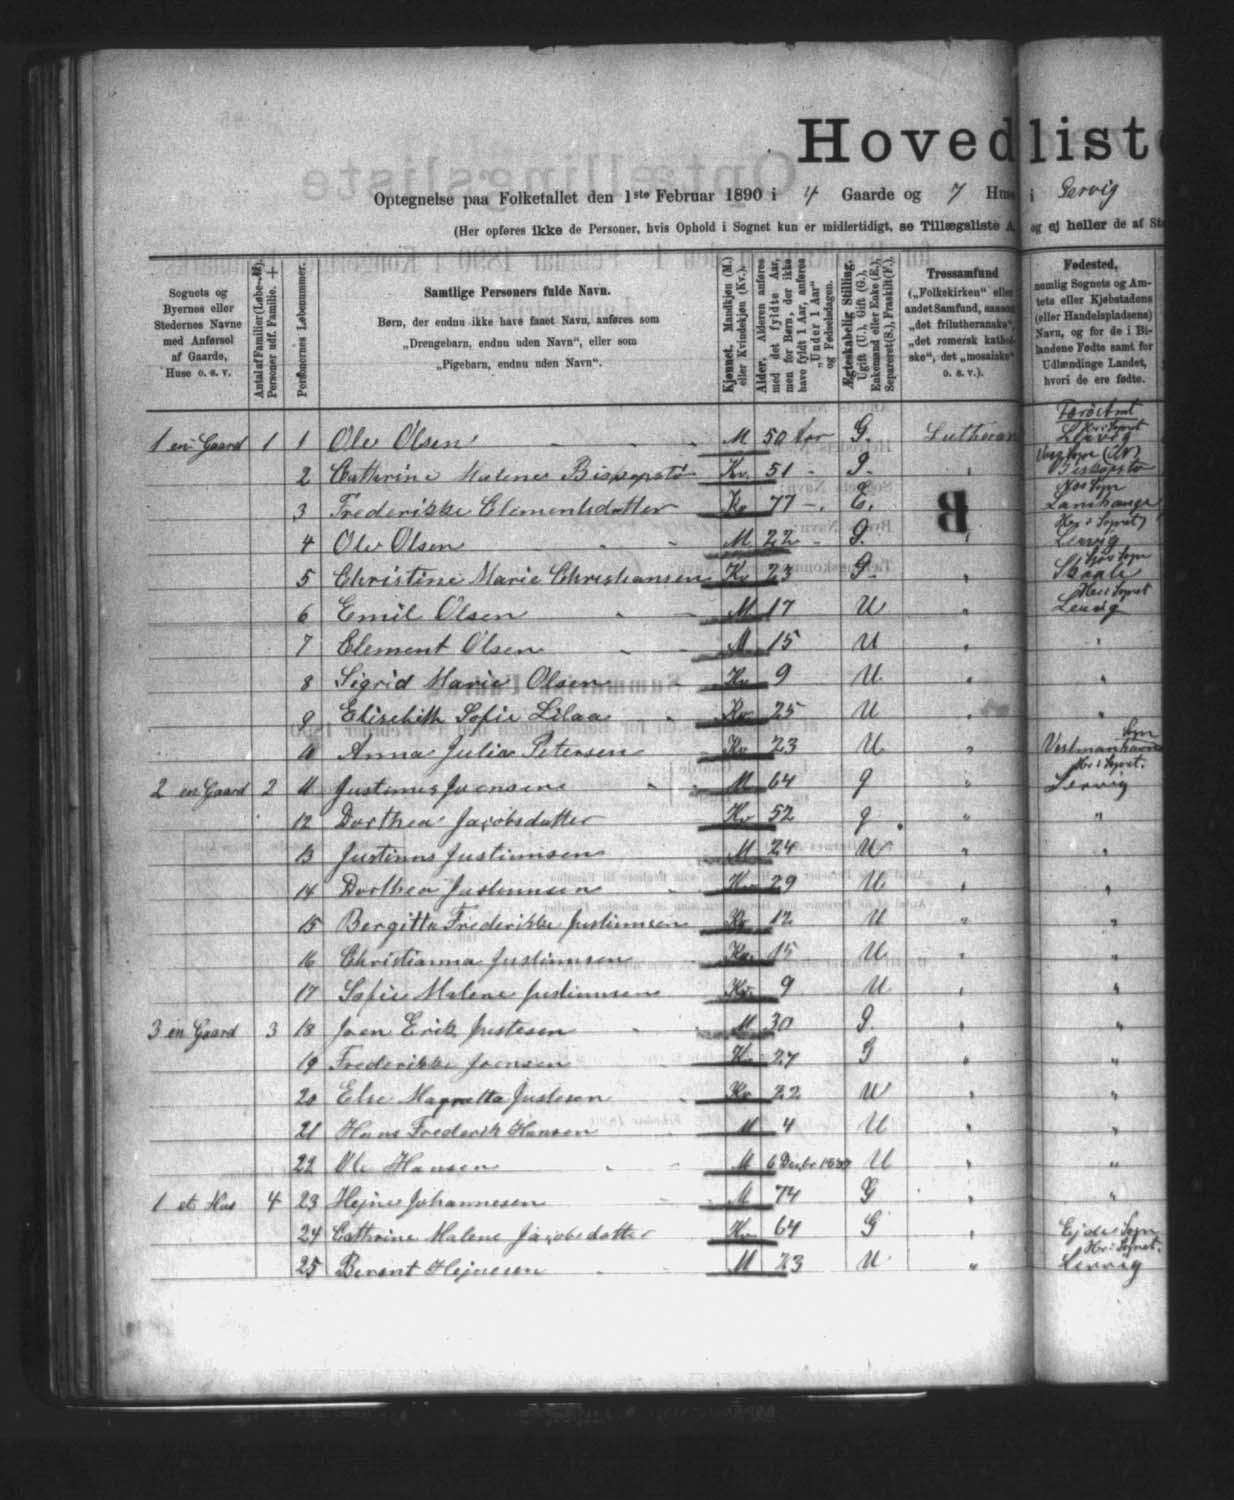 Hovedliste
Optegnelse paa Folketallet den 1ste Februar 1890 i 4 Gaarde og 7 Huse i Lervig
(Her opføres ikke de Personer, hvis Ophold i Sognet kun er midlertidigt, se Tillægsliste A, og ej heller de af
Sognets og Byernes eller Stedernes Navne med Anførsel af Gaarde, Huse o. s. v.
Antal af Familier (Løbe-№). Personer udf. Familie. +
Personernes Løbenummer.
Samtlige Personers fulde Navn.
Børn, der endnu ikke have faaet Navn, anføres som
„Drengebarn, endnu uden Navn“, eller som
„Pigebarn, endnu uden Navn“.
Kjønnet. Mandkjøn (M.) eller Kvindekjøn (Kv.).
Alder. Alderen anføres med det fyldte Aar, men for Børn, der ikke have fyldt 1 Aar, anføres „Under 1 Aar“ og Fødselsdagen.
Ægteskabelig Stilling. Ugift (U.), Gift (G.), Enkemand eller Enke (E.), Separeret (S.), Fraskilt (F.).
Trossamfund
(„Folkekirken“ eller andet Samfund, saasom „det frilutheranske“, „det romersk katholske“, det „mosaiske“ o. s. v.).
Fødested,
nemlig Sognets og Amtets eller Kjøbstadens (eller Handelspladsens) Navn, og for de i Bilandene Fødte samt for Udlændinge Landet, hvori de ere fødte.
Færø Amt
1 en Gaard 1 1 Ole Olsen M 50 Aar G. Lutheran Her i Sognet Lervig
2 Cathrine Malene Bispopstö Kv. 51 G. Biskopstø
3 Frederikke Clementsdatter Kv 77 E. Næs Sogn Lamhauge
4 Ole Olsen M 22 G. Her i Sognet Lervig
5 Christine Marie Christiansen Kv 23 G. Skaale
6 Emil Olsen M 17 U Her i Sognet Lervig
7 Clement Olsen M 15 U
8 Sigrid Marie Olsen Kv 9 U
9 Elisebith Sofie Lilaa Kv 25 U
10 Anna Julia Petersen Kv 23 U Vestmanhavn Sogn
2 en Gaard 2 11 Justinus Joensen M 64 g Her i Sognet. Lervig
12 Dorthea Jacobsdatter Kv 52 g. "
13 Justinus Justinussen M 24 U "
14 Dorthea Justinussen Kv 29 U "
15 Bergitta Frederikke Justinussen Kv 12 U "
16 Christianna Justinussen Kv. 15 U "
17 Sofie Malene Justinussen Kv. 9 U "
3 en Gaard 3 18 Joen Erik Justesen M 30 G. "
19 Frederikke Joensen Kv 27 G "
20 Else Magretta Justesen Kv 22 U "
21 Hans Frederik Hansen M 4 U "
22 Ole Hansen M 6 Decbr 1889 U "
1 et Hus 4 23 Hejne Johannesen M 74 G "
24 Cathrine Malene Jacobsdatter Kv 64 G Ejde Sogn
25 Berent Hejnesen M 23 U " Her i Sognet. Lervig